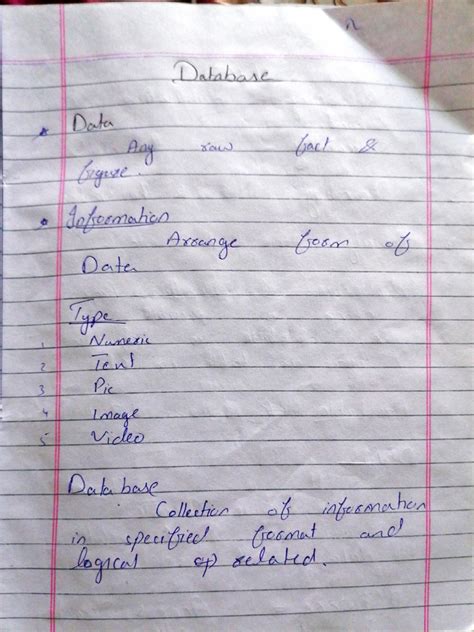 Database
* Data
Any raw fact &
figure.
• Information
Arrange form of
Data
Type
1 Numeric
2 Text
3 Pic
4 Image
5 Video
Database
Collection of information
in specified format and
logical op related.